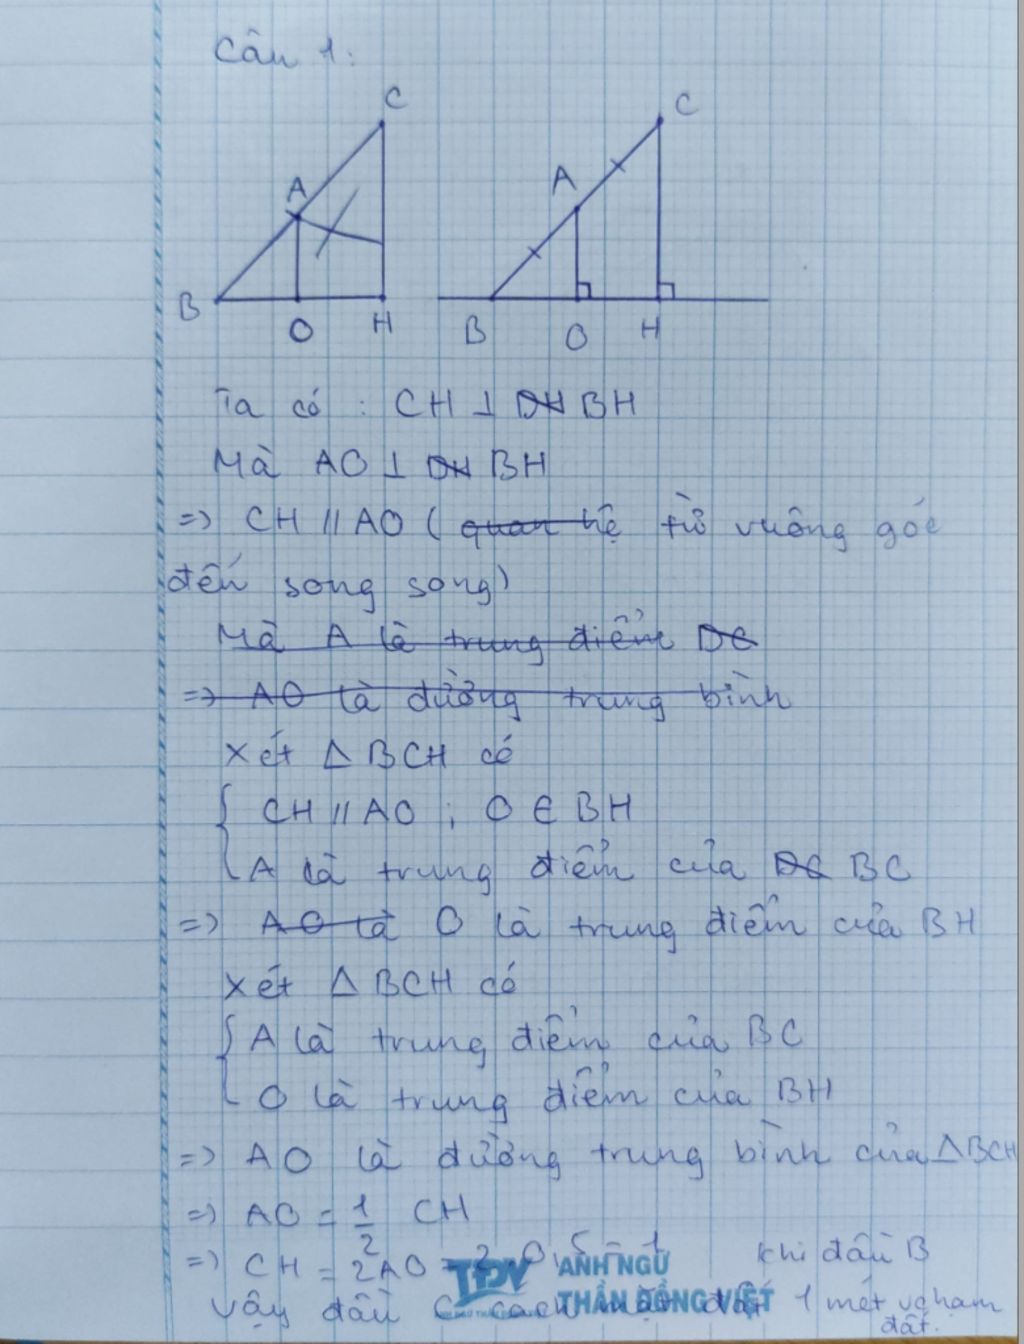 Câu 1:
C
C
A
A
B
O
H
B
O
H
Ta có : CH ⊥ DH BH
Mà AO ⊥ DH BH
=> CH // AO ( quan hệ từ vuông góc
đến song song)
Mà A là trung điểm DC
=> AO là đường trung bình
Xét Δ BCH có
{ CH // AO ; O ∈ BH
A là trung điểm của DC BC
=> AO là O là trung điểm của BH
Xét Δ BCH có
{ A là trung điểm của BC
O là trung điểm của BH
=> AO là đường trung bình của Δ BCH
=> AO = 1/2 CH
=> CH = 2AO = 2.0,5 = 1 khi đầu B
Vậy đầu C cách mặt đất 1 mét chạm
đất.
TĐV ANH NGỮ
THẦN ĐỒNG VIỆT